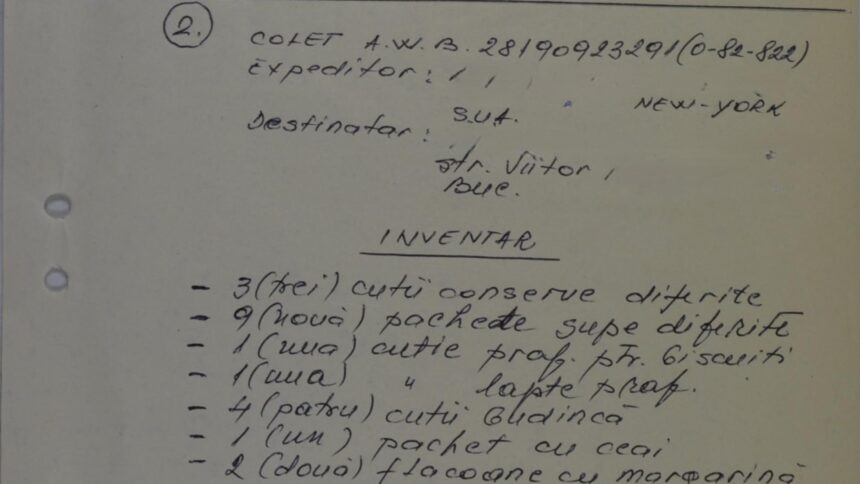 2.
COLET A.W.B. 28190923291 (0-82-822)
Expeditor:
S.U.A. NEW-YORK
Destinatar:
str. Viitor,
Buc.
INVENTAR
- 3 (trei) cutii conserve diferite
- 9 (nouă) pachete supe diferite
- 1 (una) cutie praf. ptr. biscuiti
- 1 (una) " lapte praf.
- 4 (patru) cutii budincă
- 1 (un) pachet cu ceai
- 2 (două) flacoane cu margarină